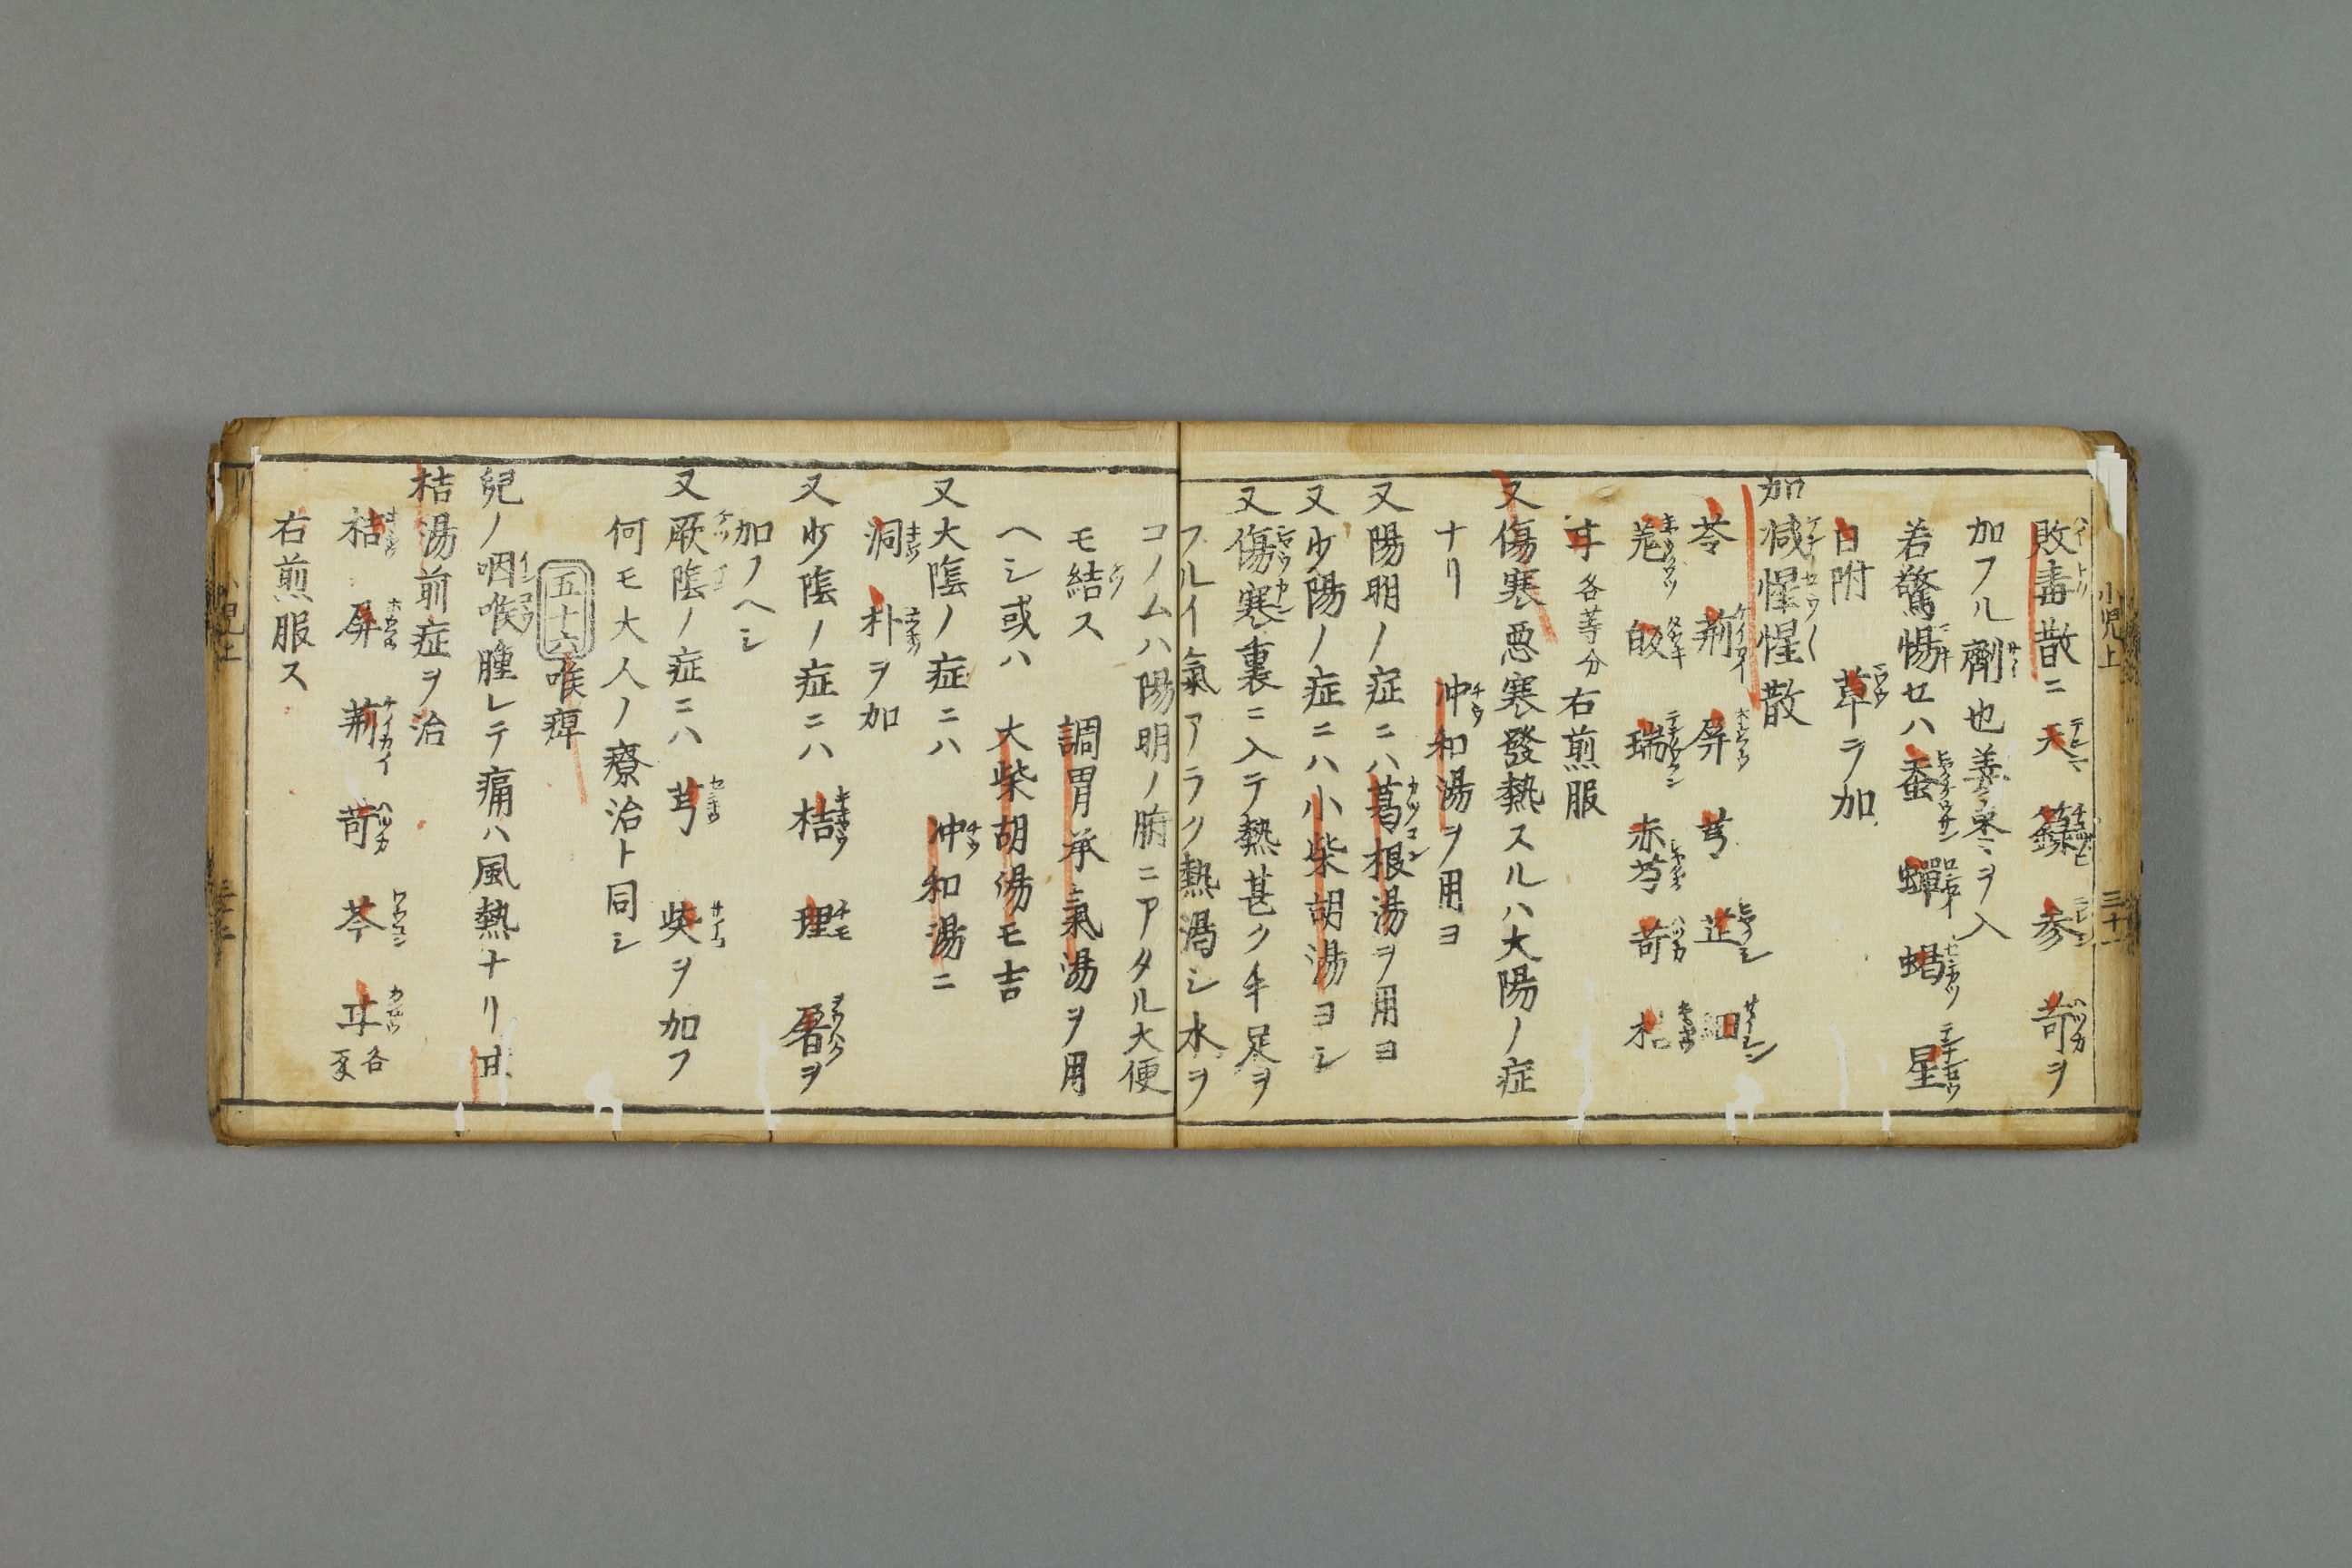 小児上 三十一
敗毒散ニ天 籙 参 苛ヲ
加フル劑也姜枣ヲ入
若驚惕セハ蚕 蟬 蝎 星
白附 草ヲ加
加减惺惺散
苓 荊 屏 芎 芷 細
羗 皈 瑞 赤芍 苛 桔
甘各等分右煎服
又傷寒悪寒發熱スルハ大陽ノ症
ナリ 冲和湯ヲ用ヨ
又陽明ノ症ニハ葛根湯ヲ用ヨ
又少陽ノ症ニハ小柴胡湯ヨシ
又傷寒裏ニ入テ熱甚ク手足ヲ
フルイ氣アラク熱渇シ水ヲ
コノムハ陽明ノ腑ニアタル大便
モ結ス 調胃承氣湯ヲ用
ヘシ或ハ 大柴胡湯モ吉
又大陰ノ症ニハ 冲和湯ニ
洞 朴ヲ加
又少陰ノ症ニハ 桔 理 ヲ
加フヘシ
又厥陰ノ症ニハ 芎 柴ヲ加フ
何モ大人ノ療治ト同シ
五十六 喉痺
兒ノ咽喉腫レテ痛ハ風熱ナリ甘
桔湯前症ヲ治
桔 屏 荊 苛 芩 甘各
右煎服ス